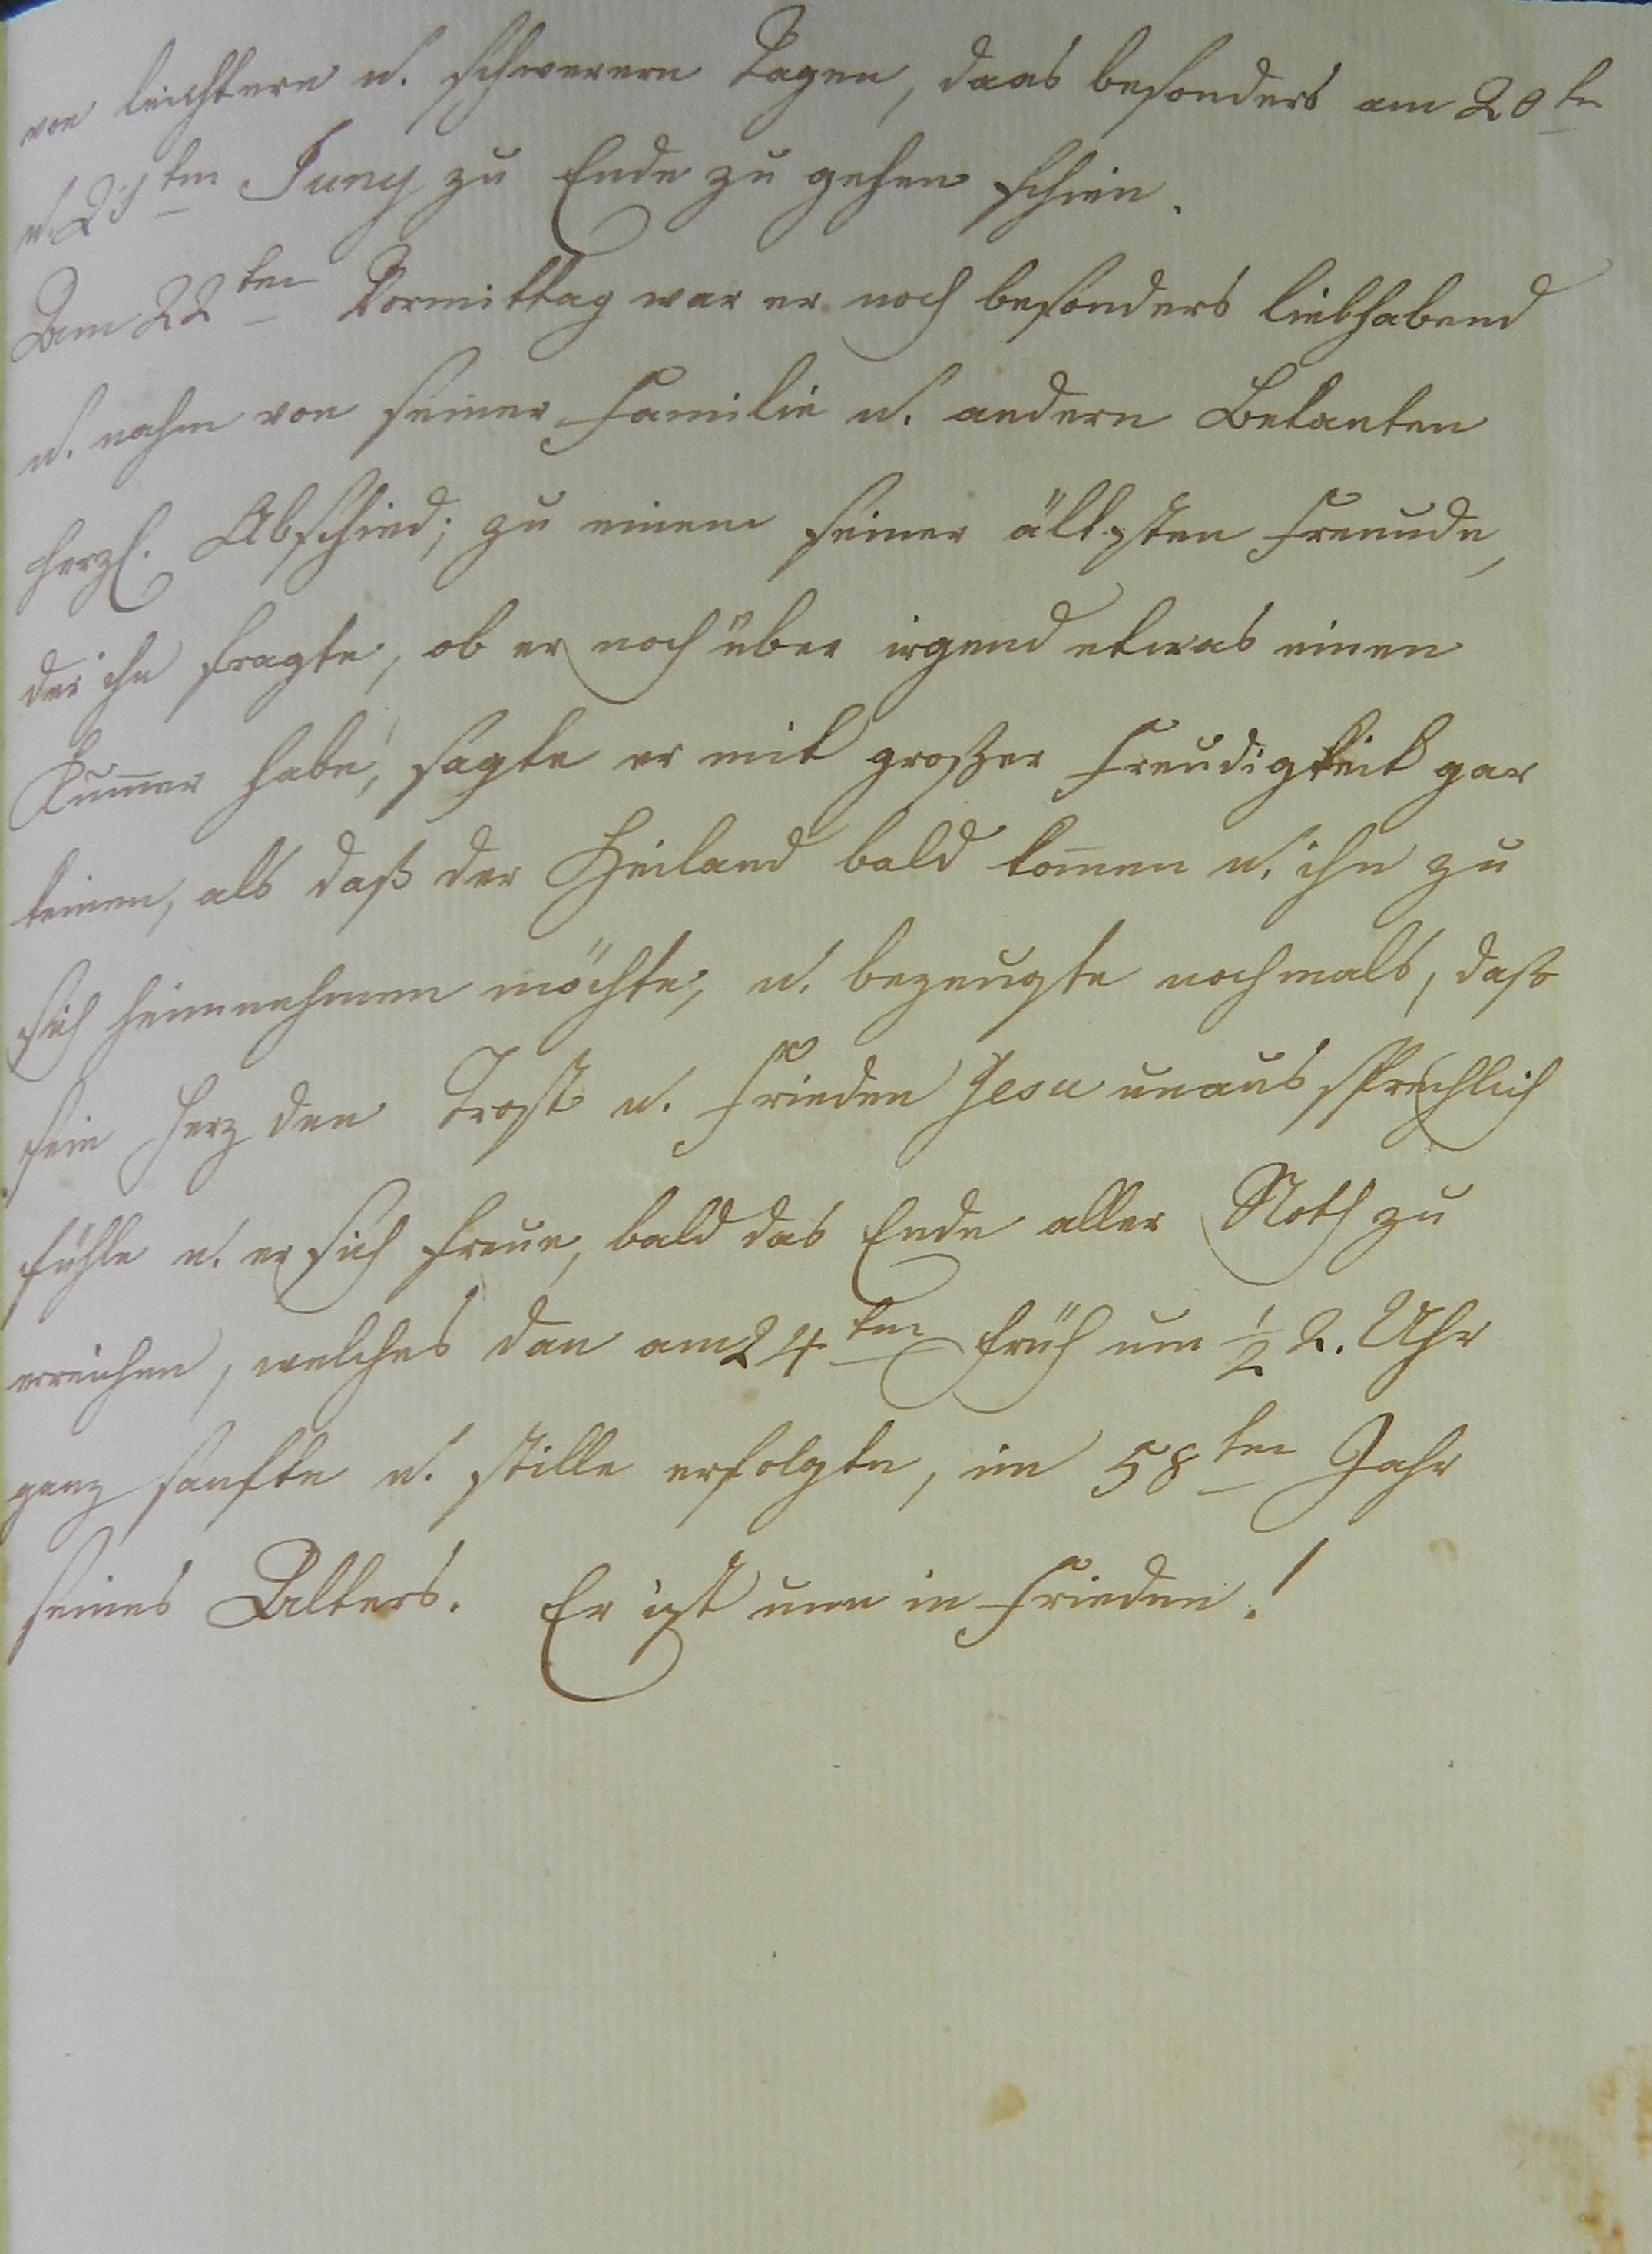 von leichtern u. schwerern Tagen, daas besonders am 20ten
u. 21ten Juny zu Ende zu gehen schien.
Am 22ten Vormittag war er noch besonders liebhabend
u. nahm von seiner Familie u. andern Bekanten
herzl. Abschied; zu einem seiner ältesten Freunde,
der ihn fragte, ob er noch über irgend etwas einen
Kum̅er habe, sagte er mit großer Freudigkeit gar
keinen, als daß der Heiland bald kom̅en u. ihn zu
sich heimnehmen möchte, u. bezeugte nochmals, daß
sein Herz den Trost u. Frieden Jesu unaussprechlich
fühle u. er sich freue, bald das Ende aller Noth zu
erreichen, welches dan am 24ten früh um ½ 2. Uhr
ganz sanfte u. stille erfolgte, im 58ten Jahr
seines Alters. Er ist nun in Frieden!